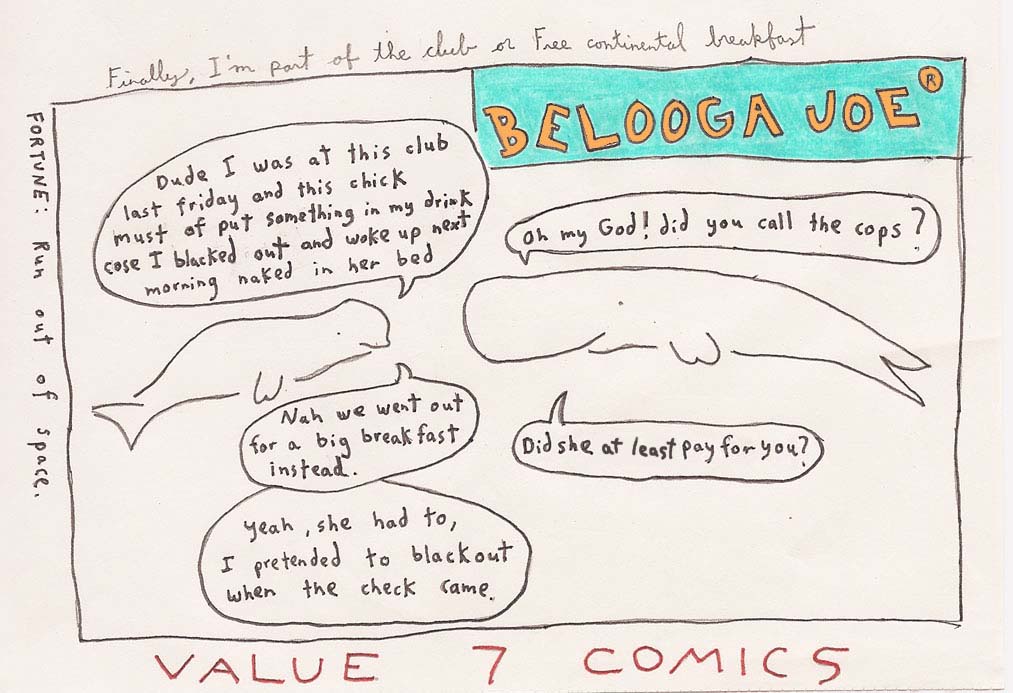 Finally, I'm part of the club or Free continental breakfast
BELOOGA JOE®
FORTUNE: Run out of space.
Dude I was at this club
last friday and this chick
must of put something in my drink
cose I blacked out and woke up next
morning naked in her bed
Oh my God! did you call the cops?
Nah we went out
for a big breakfast
instead.
Did she at least pay for you?
Yeah, she had to,
I pretended to blackout
when the check came.
VALUE 7 COMICS